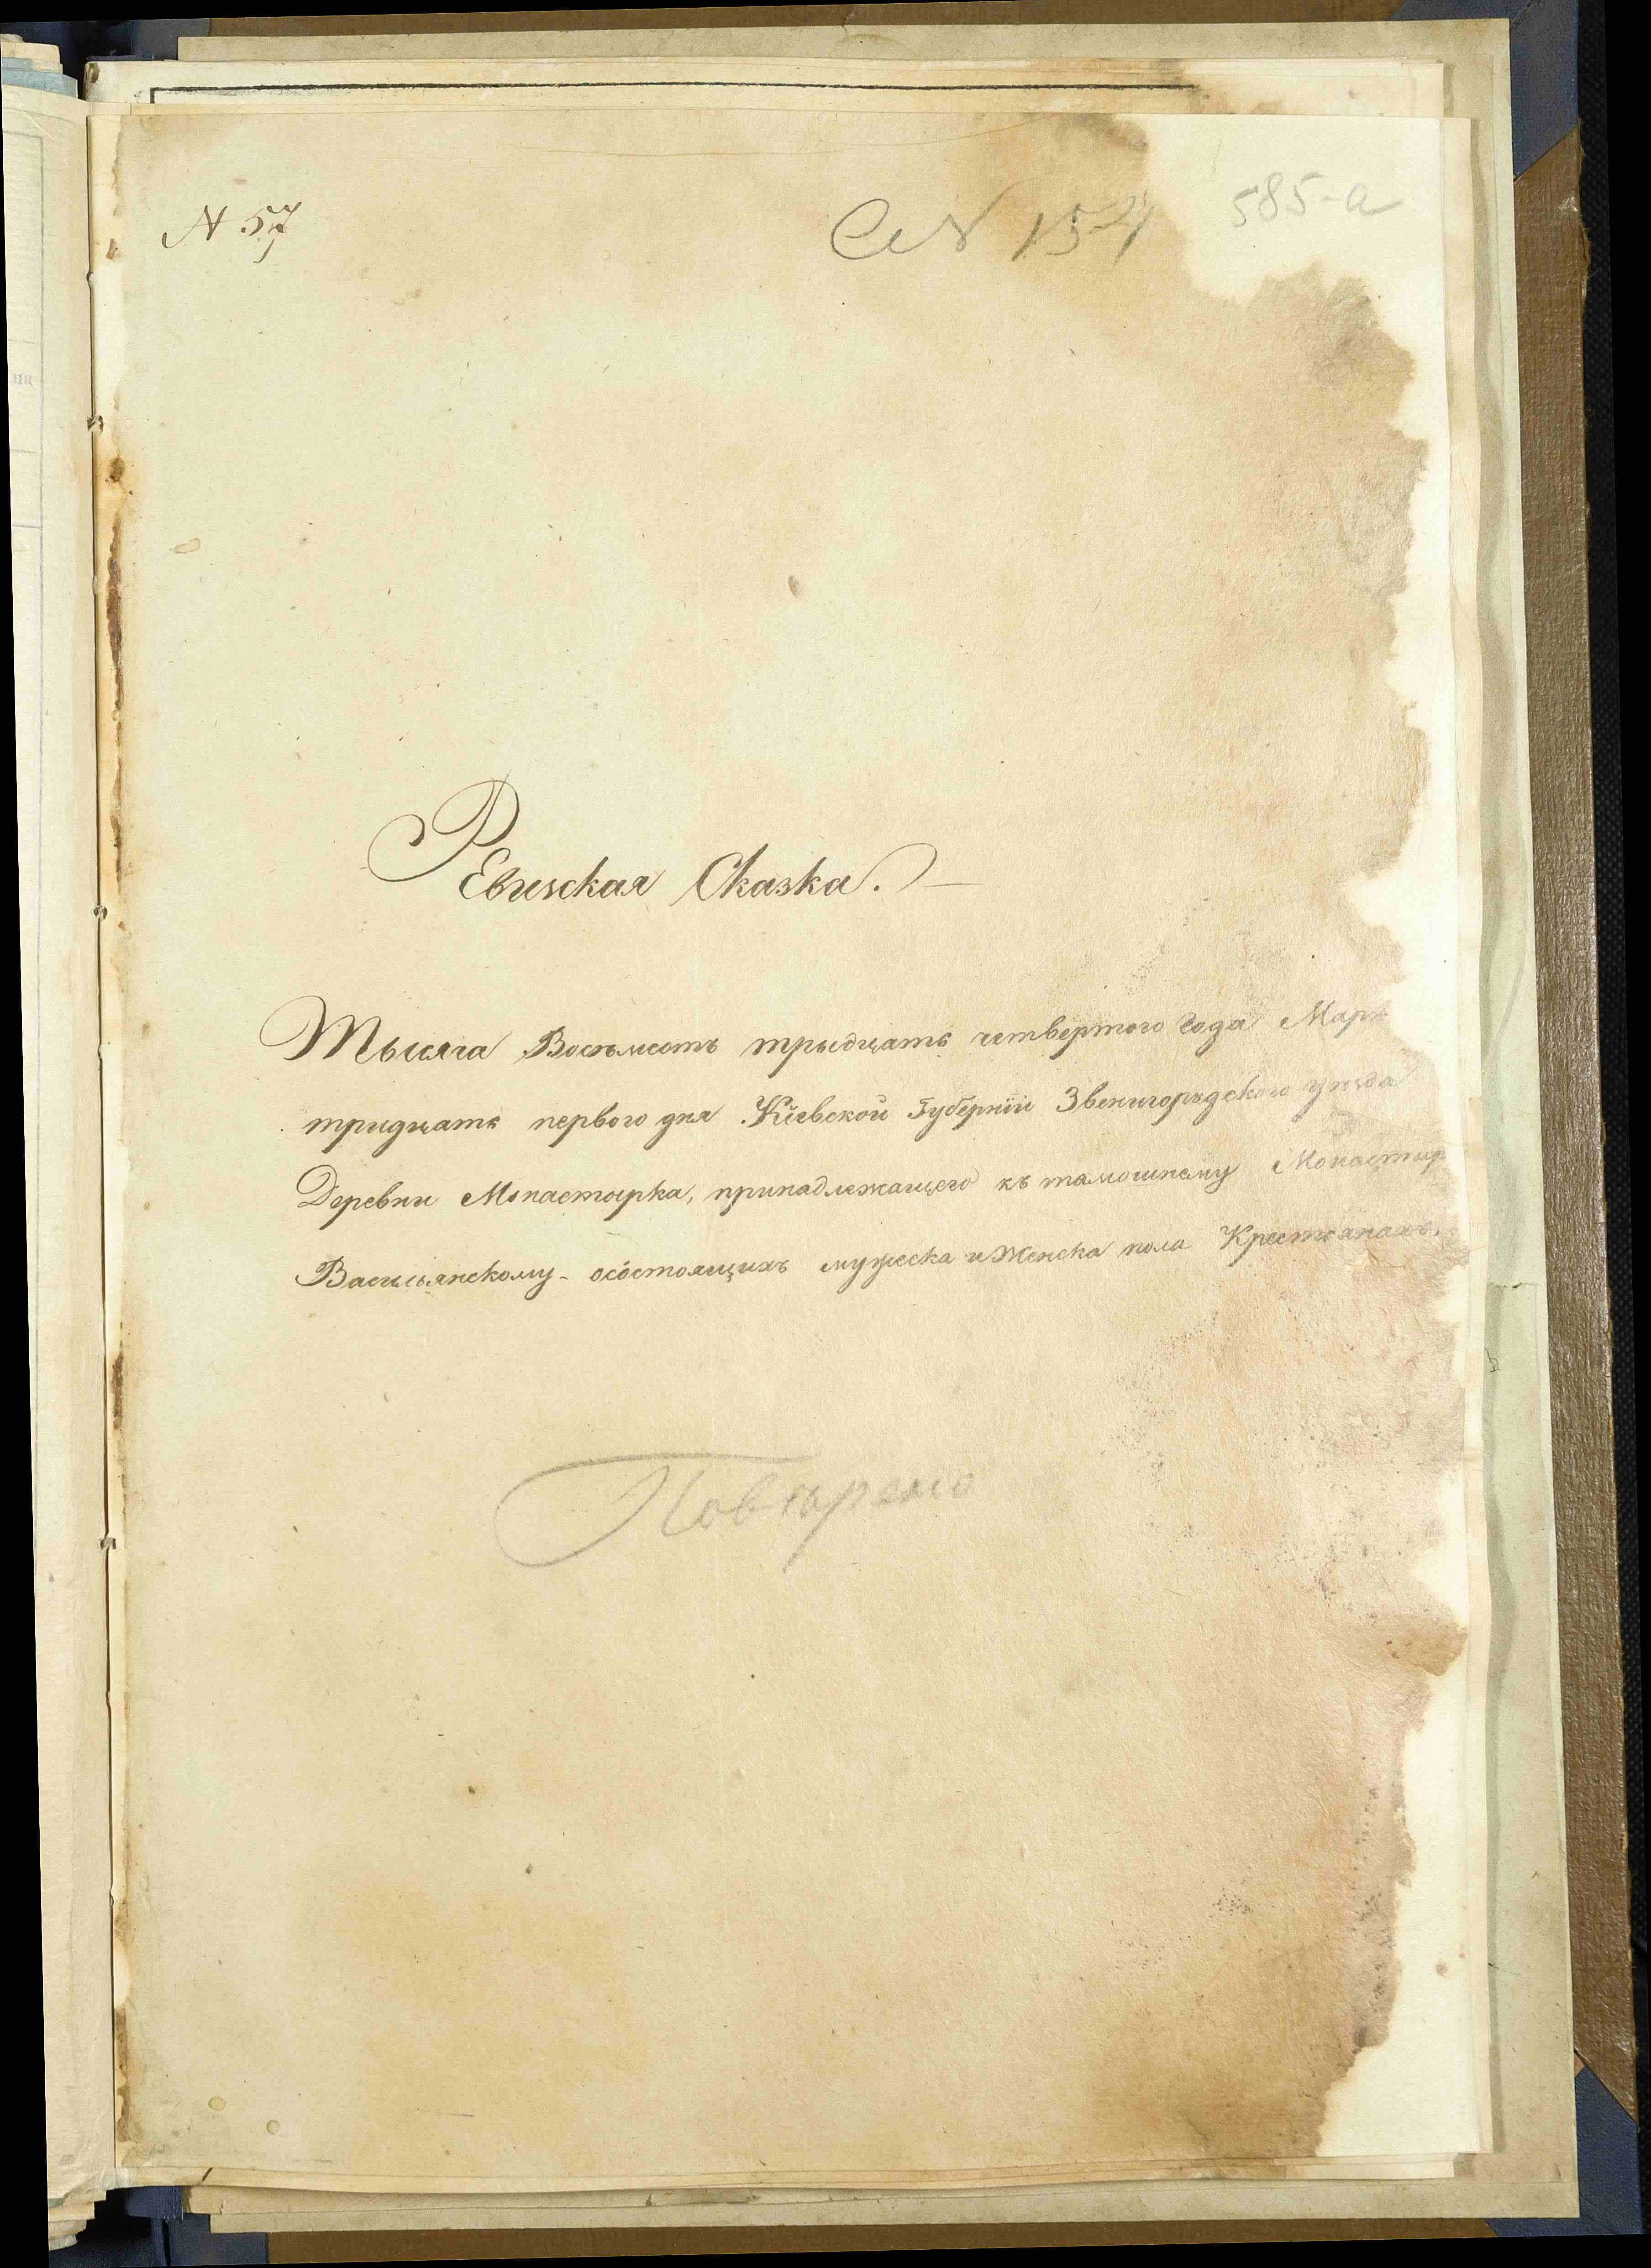 N 57
N 154
585-а
Ревизская Сказка.
Тысяча Восъмсотъ трыдцать четвертого Года Мар
тридцать первого дня Кіевской Губерніи Звенигородского уѣзда
Деревни Монастырка, принадлежащего къ тамошнему Монастыр
Васильянскому - осостоящихъ мужеска и Женска пола Крестьянахъ.
Повѣрено